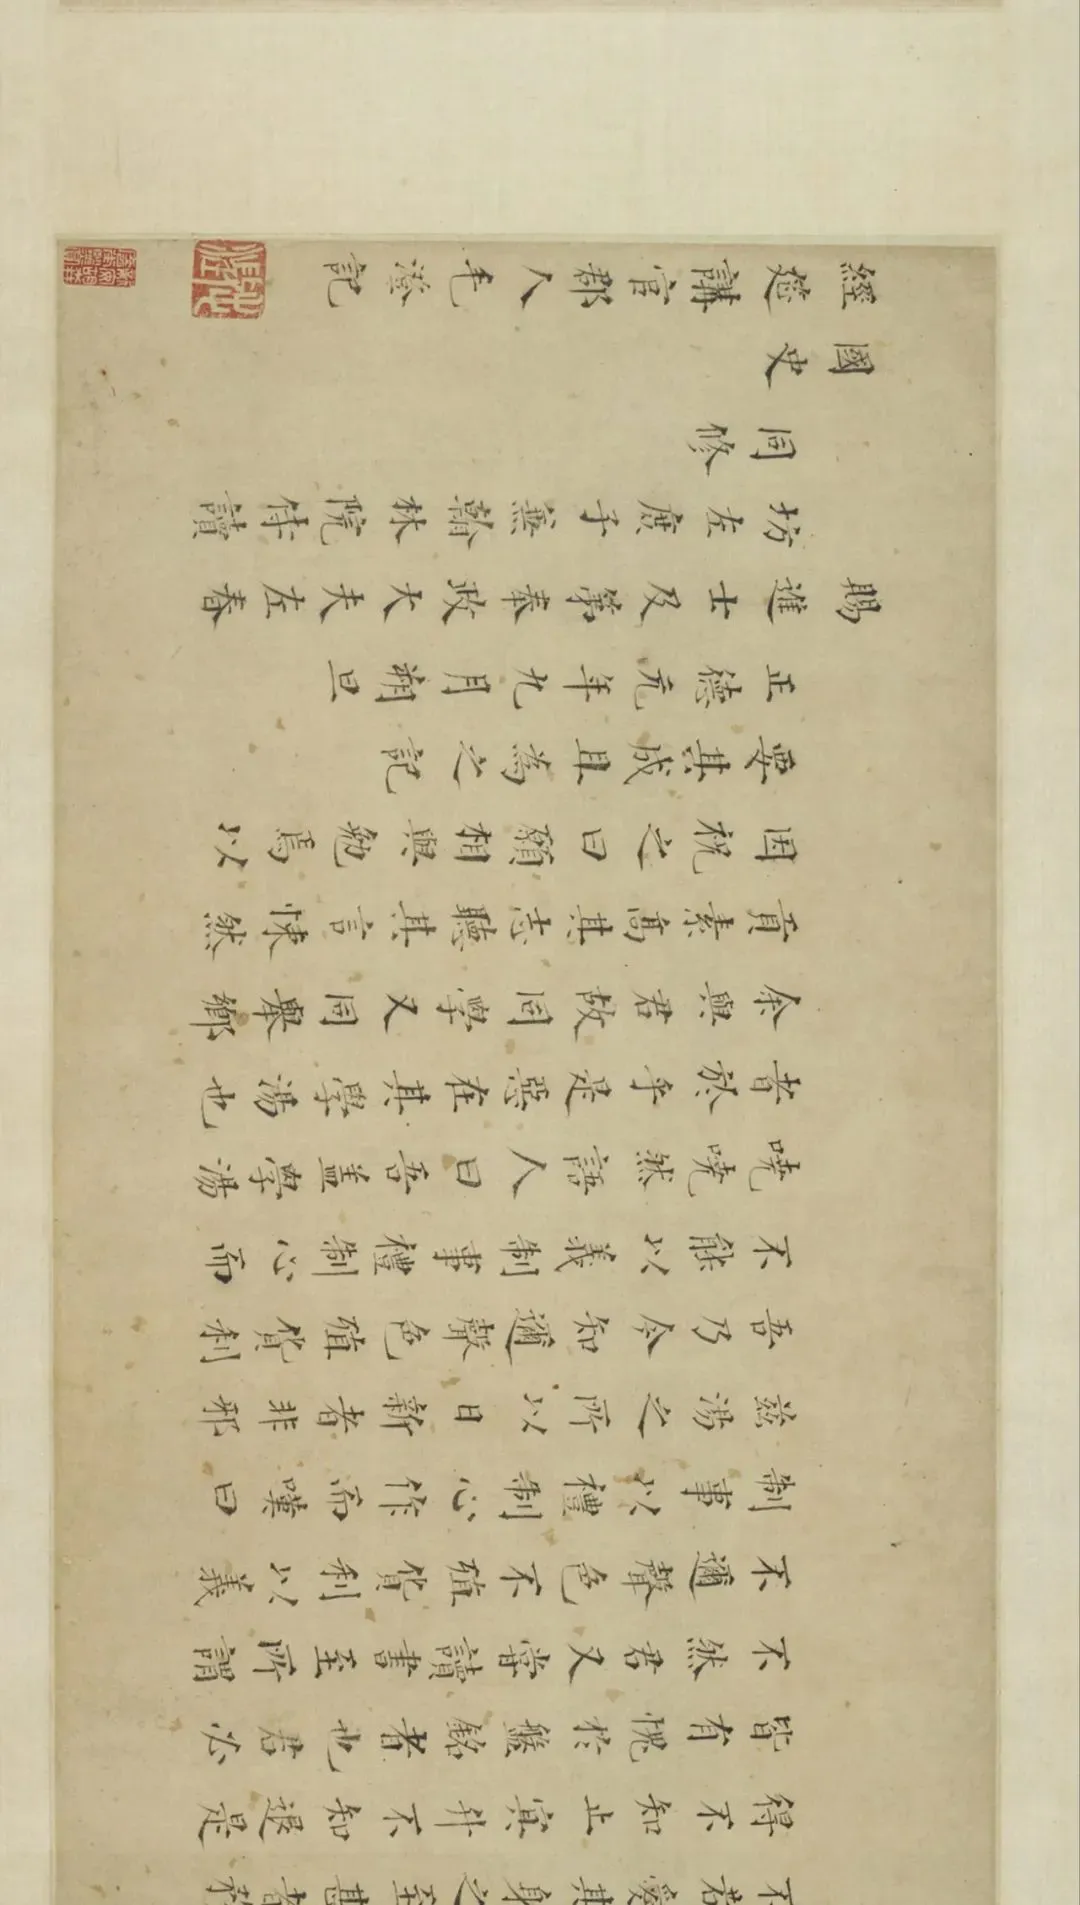 愛其身之至甚者
得不知止冥升不知退是
皆有愧於盤銘者也君必
不然君又嘗讀書至所謂
不邇聲色不殖貨利以義
制事以禮制心作而嘆曰
茲湯之所以日新者非邪
吾乃今知邇聲色殖貨利
不能以義制事禮制心而
嘵嘵然語人曰吾蓋學湯
者於乎是惡在其學湯也
余與君故同學又同舉鄉
貢素高其志聽其言悚然
因祝之曰願相與勉焉以
要其成且為之記
正德元年九月朔旦
賜進士及第奉政大夫左春
坊左庶子兼翰林院侍讀
同修
國史
經筵講官郡人毛澄記